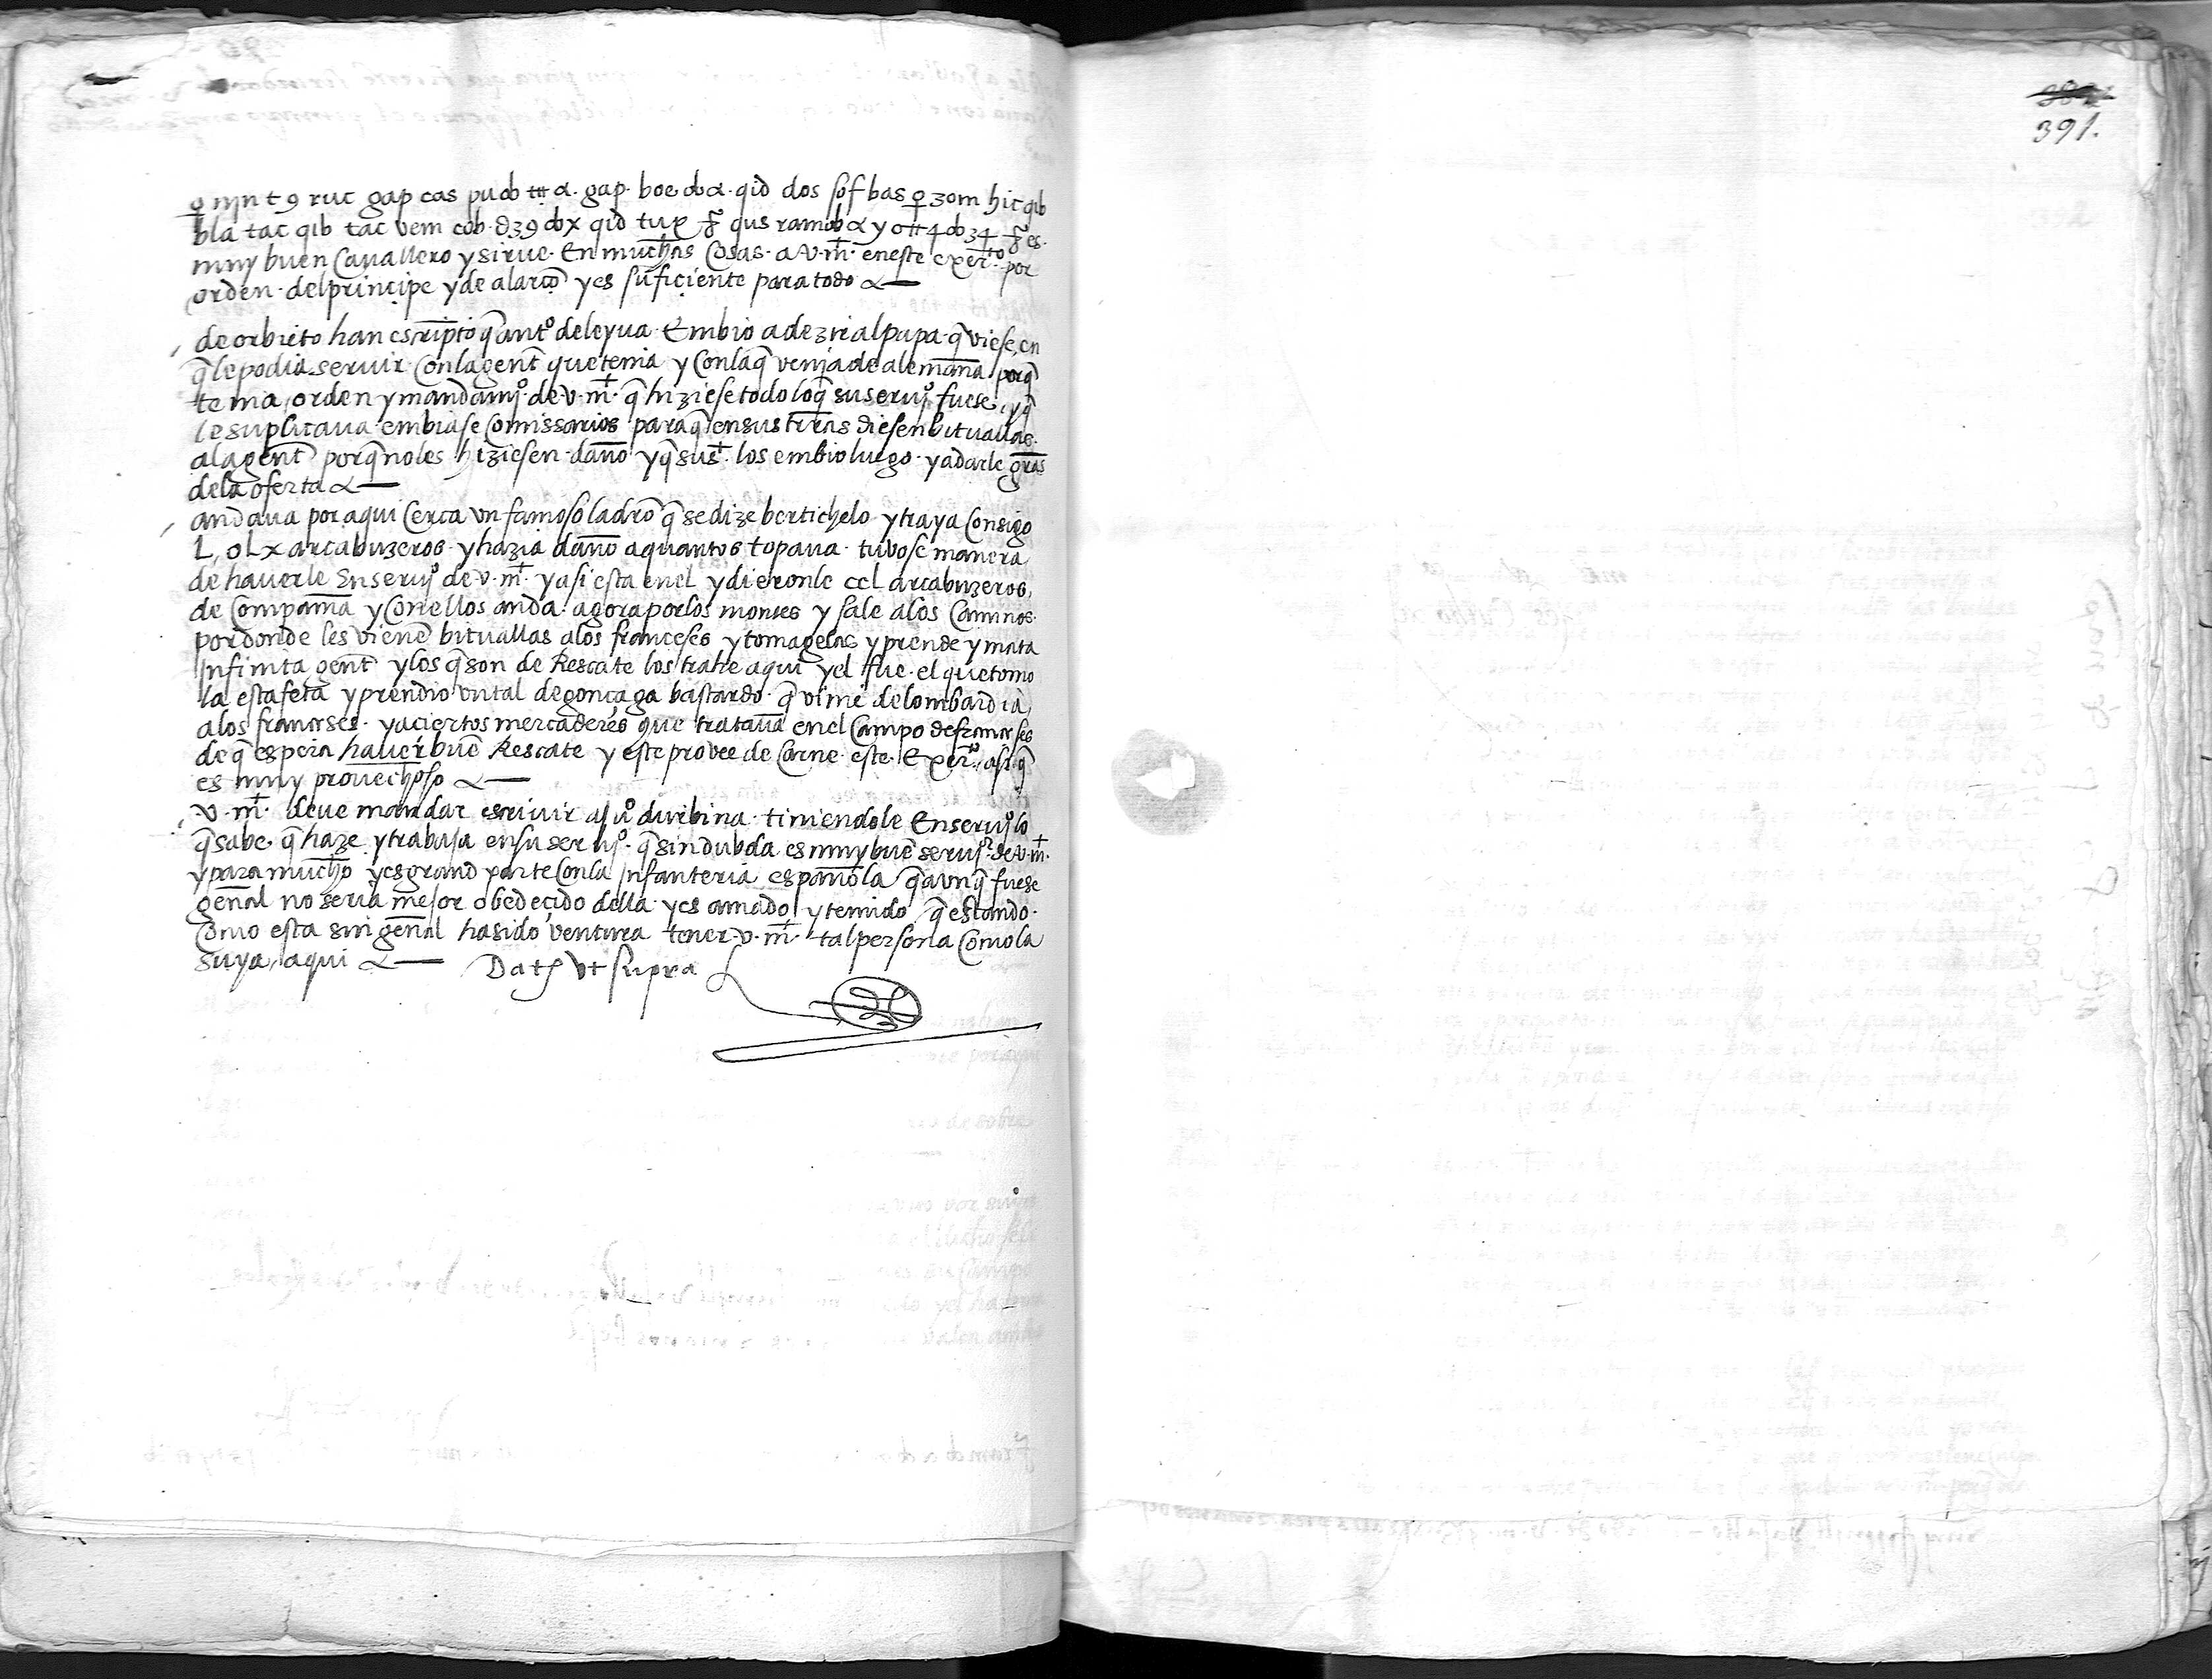 391.
ruc gap cas pudb α. gap. boe db α. qid dos sof bas zom hic qib
bla tac qib tac vem cob. qid tup qus ramdb α y es.
muy buen Cavallero y sirue. En muchas Cosas. a V. mt. en este exerto. por
orden. del principe y de alarcō y es suficiente para todo α —
de orbieto han escripto q̄ anto de leyua. Embio a dezir al papa. q̄ viese, en
q̄ le podia servir Con la gent que tenia y Con la q̄ venja de alemana porq̄
tenia orden y mandamjo. de. v. mt. q̄ hiziese todo lo q̄ su serujo fuese, y q̄
le suplicaua embiase Comissarios para q̄ en sus trras diesen bituallas.
a la gent porq̄ no les hiziesen. daño y q̄ su st. los embio luego. y a darle gras
de la oferta α —
andaua por aqui Cerca vn famoso ladrō q̄ se dize bertichelo y traya Consigo
L, o Lx arcabuzeros. y hazia daño a quantos topaua. tuvose manera
de hauerle En serujo de v. mt. y asi esta en el y dieronle ccl arcabuzeros,
de Compañia y Con ellos anda. agora por los montes y sale a los Caminos.
por donde les vienē bituallas a los franceses y tomagelas y prende y mata
Infinita gent y los q̄ son de Rescate los trahe aqui y el fue. el que tomo
la estafeta y prendio vn tal de gonçaga bastardo. q̄ vinie de lombardia,
a los franceses. y a ciertos mercaderes que tratauā en el Campo de franceses
de q̄ espera hauer buē Rescate y este provee de Carne. este. Exerto. asi q̄
es muy prouechoso α —
V. mt. deue mandar escriuir a ju durbina. tiniendole En serujo lo
q̄ sabe. q̄ haze y trabaja en su serujo. q̄ sin dubda es muy buē serujor de v. mt.
y para mucho y es grand parte Con la Infanteria española q̄ avnq̄ fuese
genal no seria mejor obedeçido della. y es amado, y temido q̄ estando.
Como esta sin genal ha sido ventura tener. v. mt. tal persona Como la
suya, aqui α — Dat Vt supra